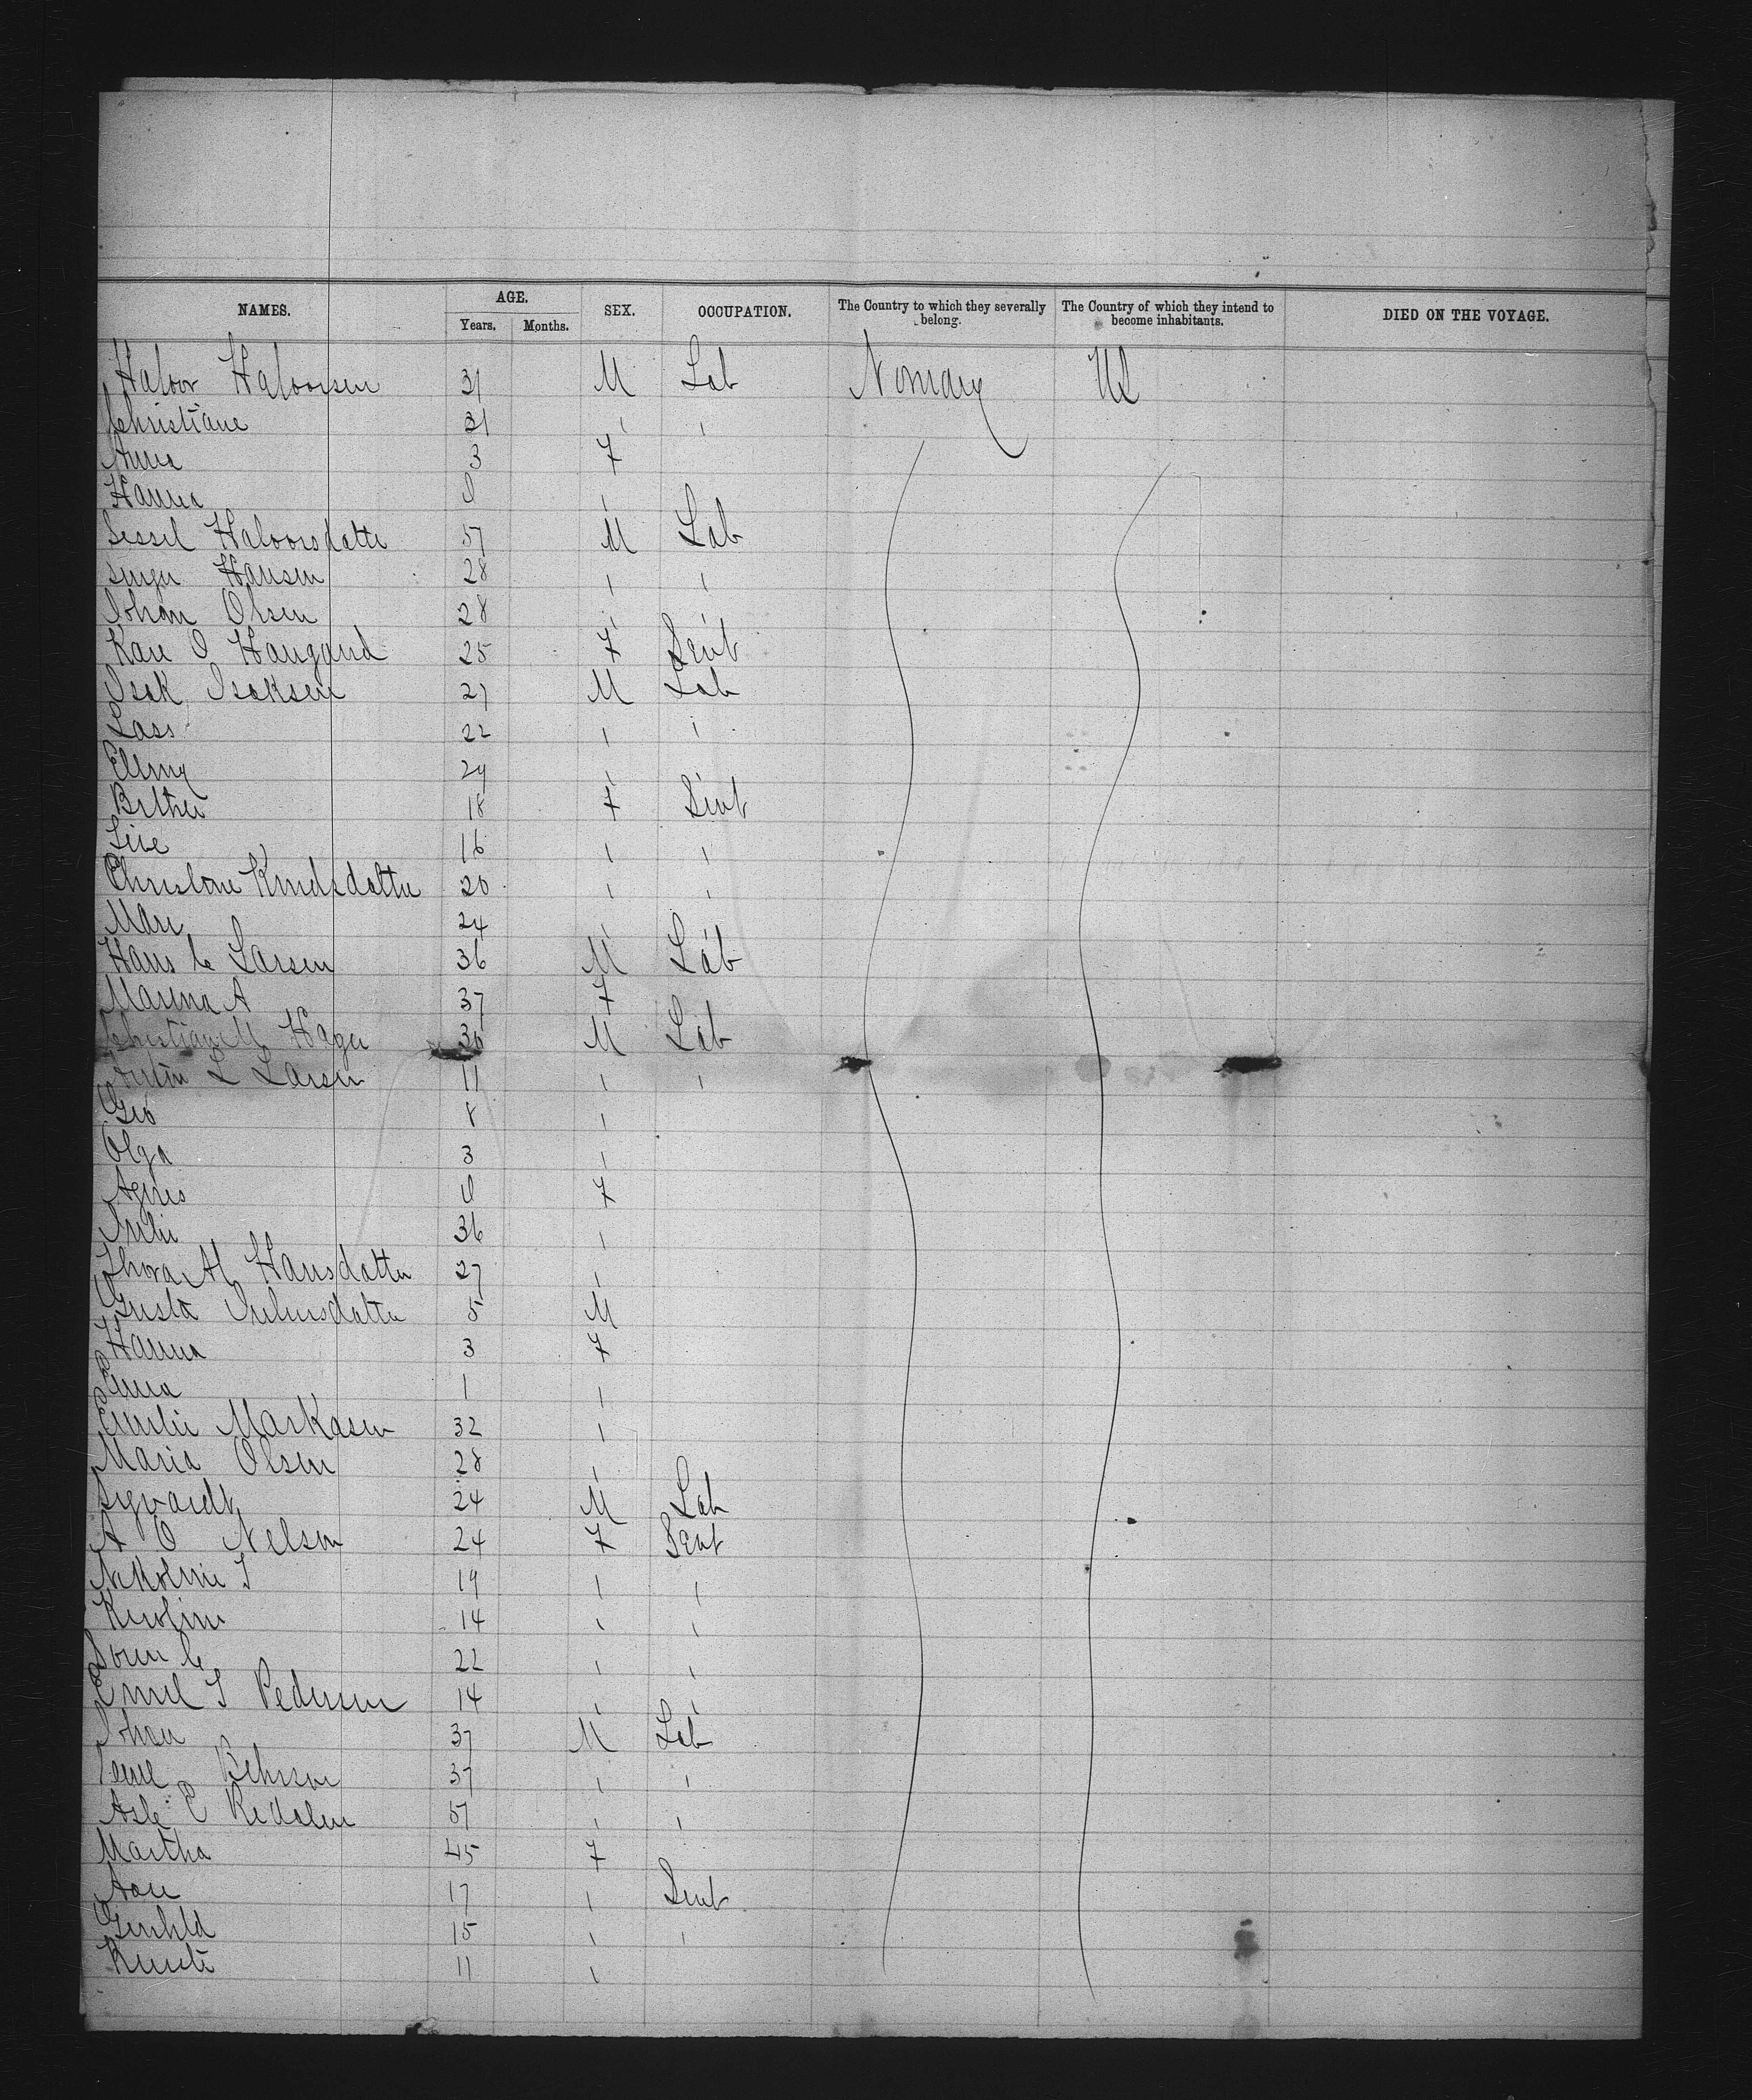 NAMES. AGE. Years. Months. SEX. OCCUPATION. The Country to which they severally belong. The Country of which they intend to become inhabitants. DIED ON THE VOYAGE.
Halvor Halvorsen 31 M Lab Norway US
Christiane 31 ı ı
Anna 3 F
Hanna 0 ı
Sessel Halvorsdatter 57 M Lab
Inger Hansen 28 ı ı
Johan Olsen 28 ı ı
Kari O Haugand 25 F Servt
Isak Isaksen 27 M Lab
Lass 22 ı ı
Elling 24 ı ı
Berthe 18 F Servt
Live 16 ı ı
Christine Knudsdatter 20 ı ı
Mari 24 ı ı
Hans C Larsen 36 M Lab
Marina A 37 F
Christian M Hagen 30 M Lab
L Larsen 11 ı ı
Geo 8 ı
Olga 3 ı
Agnes 0 F
Julie 36 ı
Thora M Hansdatter 27 ı
Gusta Juliusdatter 5 M
Hanna 3 F
Emma 1 ı
Emilie Markasen 32 ı
Maria Olsen 28 ı
Sigvardt 24 M Lab
A O Nelson 24 F Servt
Nikoline T 19 ı ı
Karoline 14 ı ı
Soren C 22 ı ı
Emil T Pedersen 14 ı ı
Johan 37 M Lab
37 ı ı
Asle E Redalen 57 ı ı
Martha 45 F
Aase 17 ı Servt
Gunhild 15 ı ı
Kirsti 11 ı